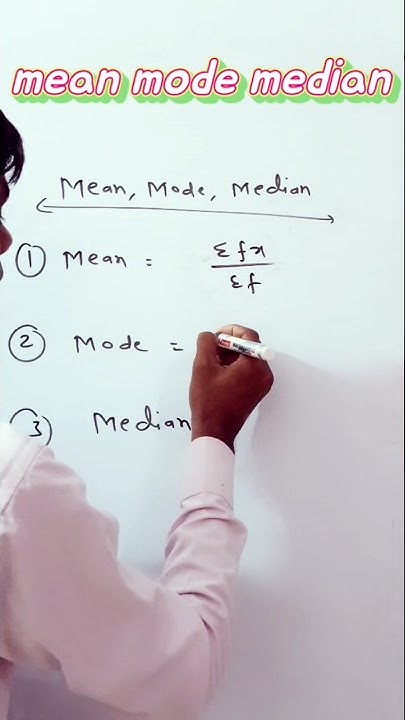 mean mode median
Mean, Mode, Median
① Mean = Σfx / Σf
② Mode =
③ Median